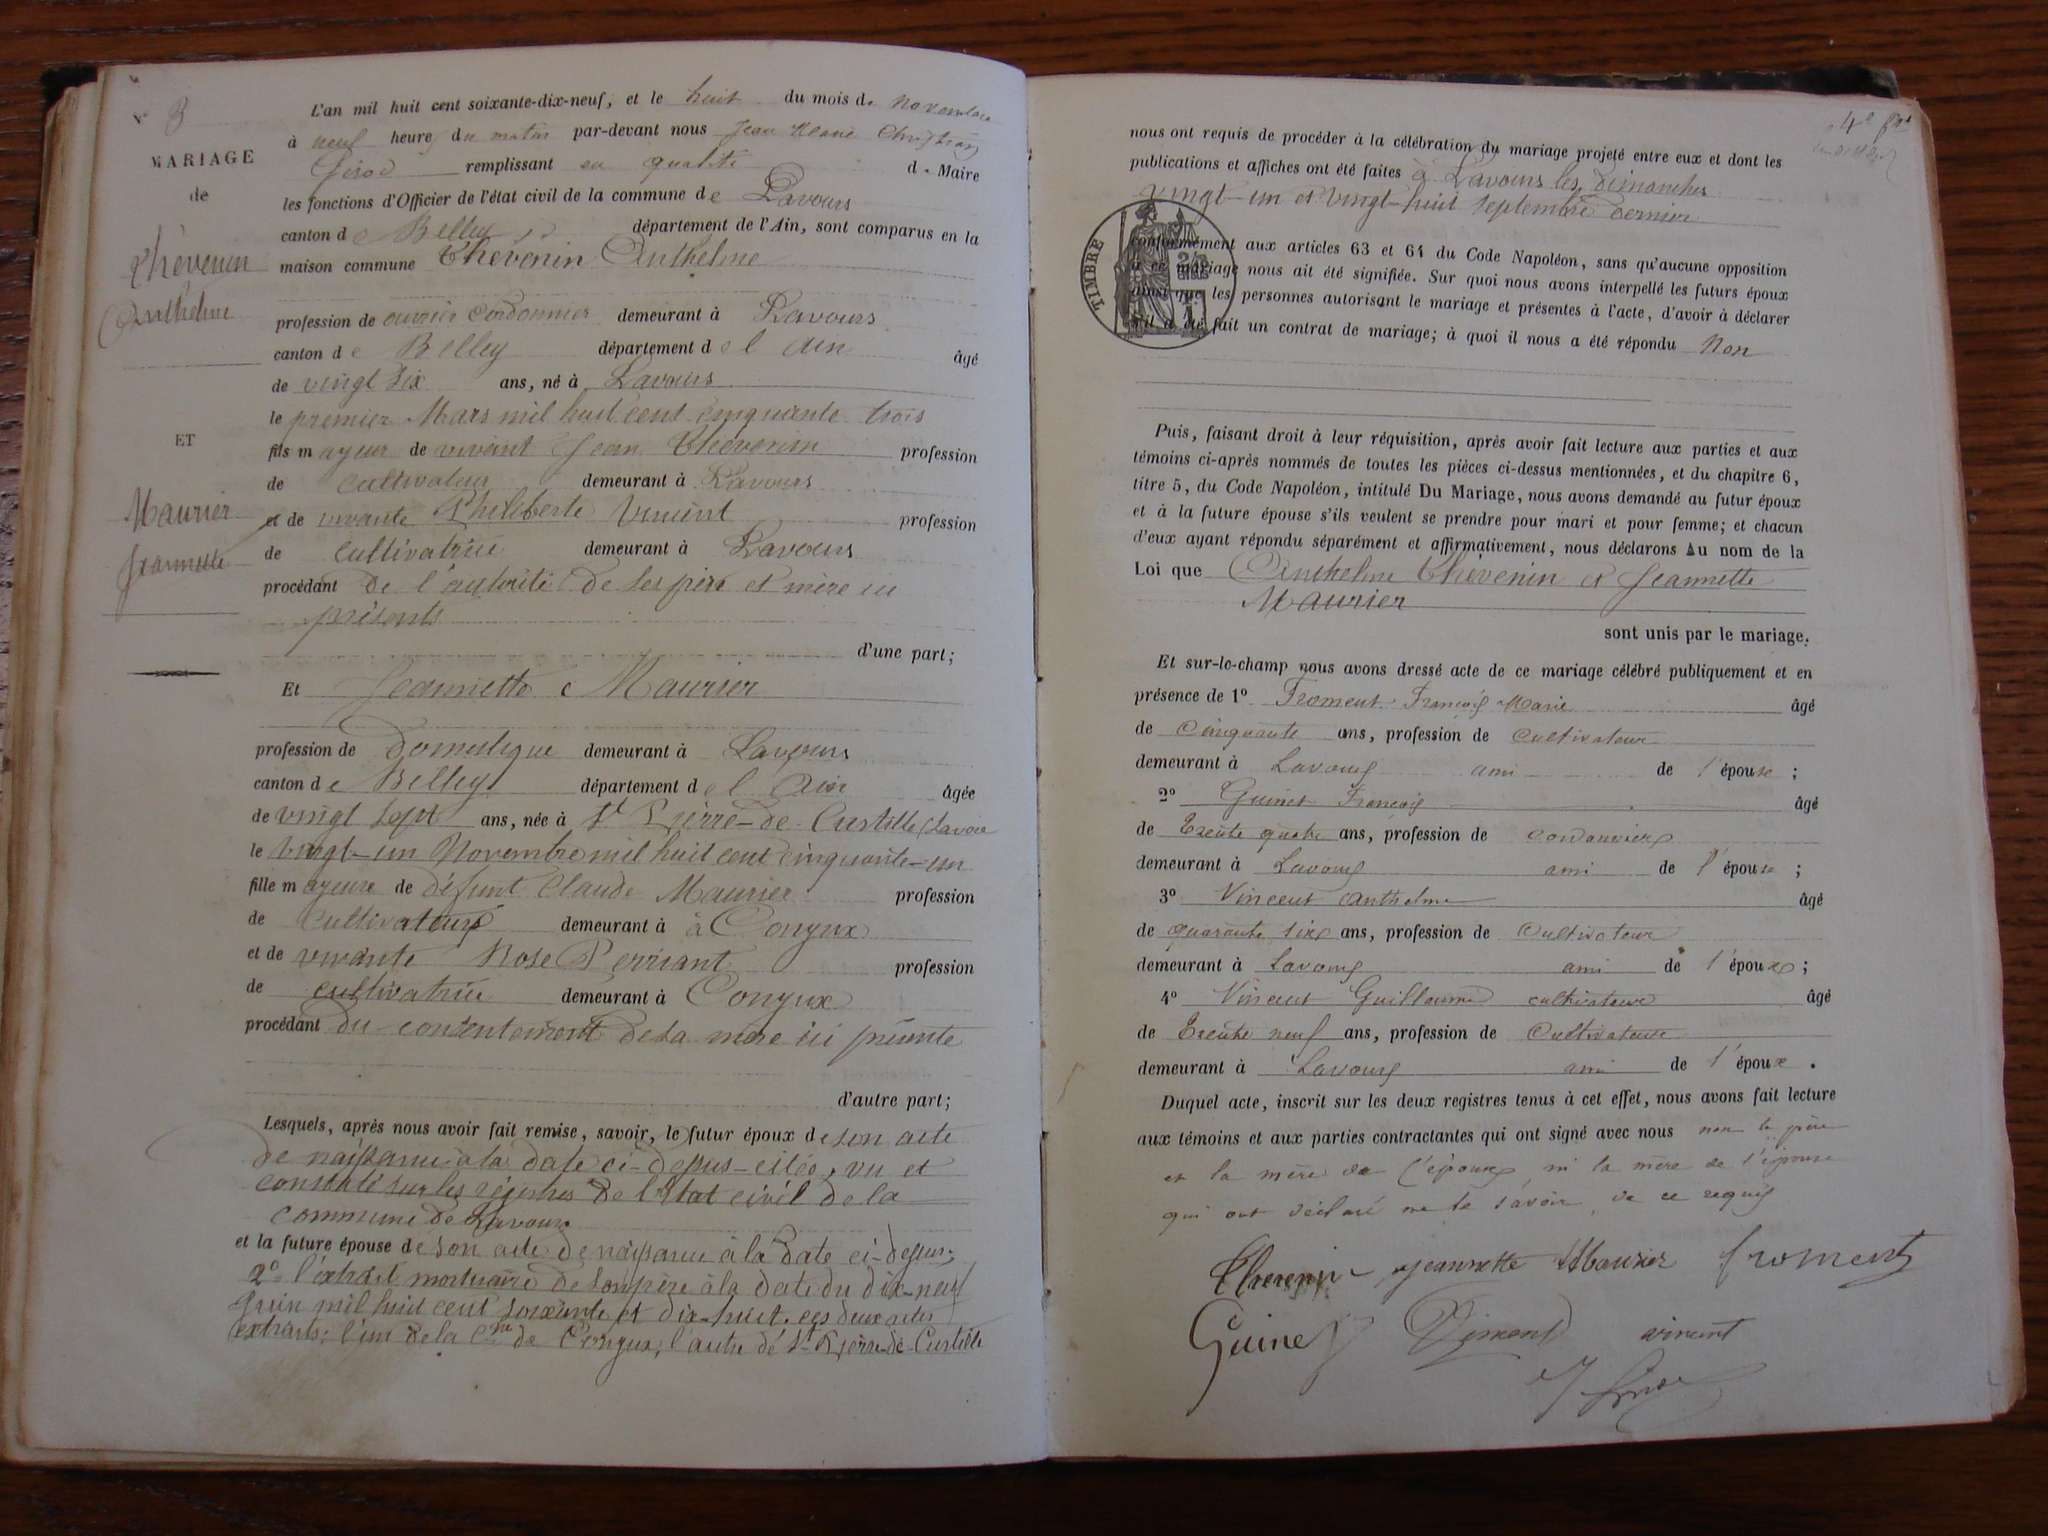 N° 3
MARIAGE
de
Thévenin
Anthelme
ET
Maurier
Jeannette
L'an mil huit cent soixante-dix-neuf, et le huit du mois de Novembre
à neuf heures du matin par-devant nous Jean Claude Christian
Girod remplissant en qualité de Maire
les fonctions d'Officier de l'état civil de la commune de Lavours
canton de Belley département de l'Ain, sont comparus en la
maison commune Thévenin Anthelme
profession de ouvrier cordonnier demeurant à Lavours
canton de Belley département de l'Ain âgé
de vingt six ans, né à Lavours
le premier Mars mil huit cent cinquante trois
fils mayeur de vivant Jean Thévenin profession
de cultivateur demeurant à Lavours
et de vivante Philiberte Vincent profession
de cultivatrice demeurant à Lavours
procédant de l'autorité de ses père et mère ici
présents
d'une part;
Et Jeannette Maurier
profession de domestique demeurant à Lavours
canton de Belley département de l'Ain âgée
de vingt sept ans, née à St Pierre-de-Curtille (Savoie
le vingt-un Novembre mil huit cent cinquante-un
fille mayeure de défunt Claude Maurier profession
de cultivateur demeurant à à Conjux
et de vivante Rose Perriant profession
de cultivatrice demeurant à Conjux
procédant du consentement de sa mère ici présente
d'autre part;
Lesquels, après nous avoir fait remise, savoir, le futur époux de son acte
de naissance à la date ci-dessus-citée, vu et
constaté sur les régistres de l'état civil de la
commune de Lavours
et la future épouse de son acte de naissance à la date ci-dessus;
2° l'extrait mortuaire de son père à la date du dix-neuf
Juin mil huit cent soixante et dix-huit. ces deux actes
extraits; l'un de la Cne de Conjux, l'autre de St Pierre-de-Curtille
nous ont requis de procéder à la célébration du mariage projeté entre eux et dont les
publications et affiches ont été faites à Lavours les dimanches
vingt-un et vingt-huit septembre dernier
TIMBRE
conformément aux articles 63 et 64 du Code Napoléon, sans qu'aucune opposition
à ce mariage nous ait été signifiée. Sur quoi nous avons interpellé les futurs époux
ainsi que les personnes autorisant le mariage et présentes à l'acte, d'avoir à déclarer
s'il a été fait un contrat de mariage; à quoi il nous a été répondu Non
Puis, faisant droit à leur réquisition, après avoir fait lecture aux parties et aux
témoins ci-après nommés de toutes les pièces ci-dessus mentionnées, et du chapitre 6,
titre 5, du Code Napoléon, intitulé Du Mariage, nous avons demandé au futur époux
et à la future épouse s'ils veulent se prendre pour mari et pour femme; et chacun
d'eux ayant répondu séparément et affirmativement, nous déclarons Au nom de la
Loi que Anthelme Thévenin et Jeannette
Maurier
sont unis par le mariage.
Et sur-le-champ nous avons dressé acte de ce mariage célébré publiquement et en
présence de 1° Froment François Marie âgé
de Cinquante ans, profession de cultivateur
demeurant à Lavours ami de l'épouse ;
2° Guinet François âgé
de trente quatre ans, profession de cordonnier
demeurant à Lavours ami de l'épouse ;
3° Vincent Anthelme âgé
de quarante six ans, profession de cultivateur
demeurant à Lavours ami de l'époux ;
4° Vincent Guillaume cultivateur âgé
de trente neuf ans, profession de cultivateur
demeurant à Lavours ami de l'époux .
Duquel acte, inscrit sur les deux registres tenus à cet effet, nous avons fait lecture
aux témoins et aux parties contractantes qui ont signé avec nous non le père
et la mère de l'époux ni la mère de l'épouse
qui ont déclaré ne le savoir de ce requis
Thevenin Jeannette Maurier froment
Guinet vincent